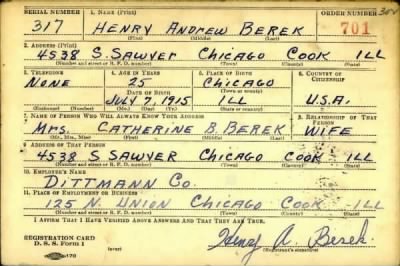 SERIAL NUMBER 1. NAME (Print) ORDER NUMBER
317 HENRY ANDREW BEREK 701
(First) (Middle) (Last)
2. ADDRESS (Print)
4538 S. SAWYER CHICAGO COOK ILL
(Number and street or R. F. D. number) (Town) (County) (State)
3. TELEPHONE 4. AGE IN YEARS 5. PLACE OF BIRTH 6. COUNTRY OF CITIZENSHIP
NONE 25 CHICAGO
DATE OF BIRTH (Town or county)
JULY 7, 1915 ILL U.S.A.
(Exchange) (No.) (Mo.) (Day) (Yr.) (State or country)
7. NAME OF PERSON WHO WILL ALWAYS KNOW YOUR ADDRESS 8. RELATIONSHIP OF THAT PERSON
MRS. CATHERINE B. BEREK WIFE
(Mr., Mrs., Miss) (First) (Middle) (Last)
9. ADDRESS OF THAT PERSON
4538 S SAWYER CHICAGO COOK ILL
(Number and street or R. F. D. number) (Town) (County) (State)
10. EMPLOYER'S NAME
DITTMANN CO.
11. PLACE OF EMPLOYMENT OR BUSINESS
125 N. UNION CHICAGO COOK ILL
(Number and street or R. F. D. number) (Town) (County) (State)
I AFFIRM THAT I HAVE VERIFIED ABOVE ANSWERS AND THAT THEY ARE TRUE.
REGISTRATION CARD
D. S. S. Form 1 Henry A. Berek
(over) (Registrant's signature)